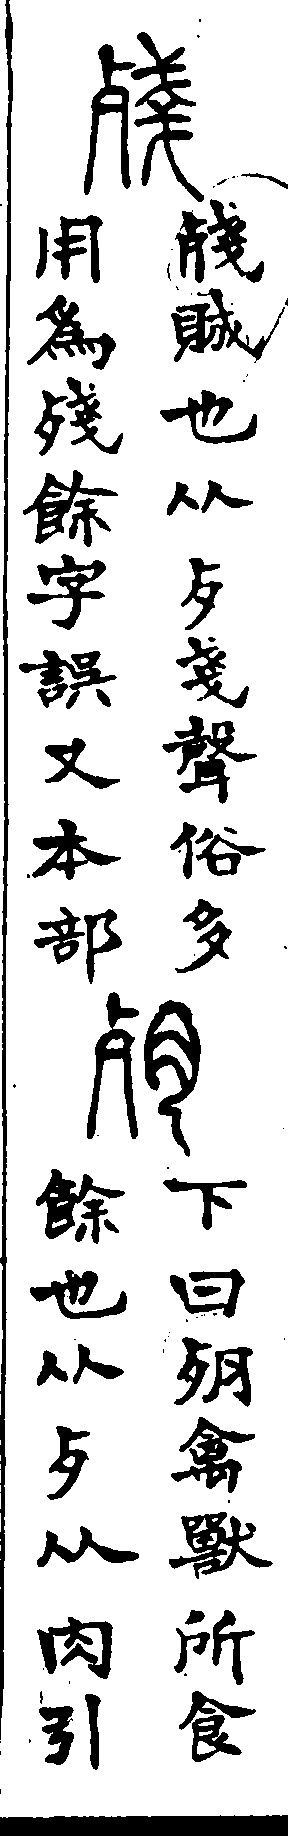 殘
殘賊也从歺戔聲俗多
用為殘餘字誤又本部
下曰 禽獸所食
餘也从歺从肉引